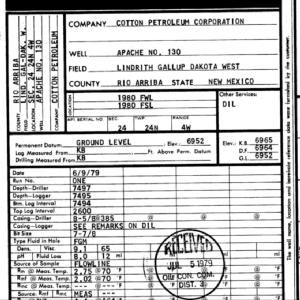 COMPANY COTTON PETROLEUM CORPORATION
WELL APACHE NO. 130
FIELD LINDRITH GALLUP DAKOTA WEST
COUNTY RIO ARRIBA STATE NEW MEXICO
COUNTY RIO ARRIBA
FIELD LIND. GAL-DAK. W.
LOCATION SEC. 24 24N 4W
WELL APACHE NO. 130
COMPANY COTTON PETROLEUM
1980 FWL
1980 FSL
Other Services:
DIL
API SERIAL NO. SEC. TWP. RANGE
24 24N 4W
Permanent Datum: GROUND LEVEL Elev.: 6952
Log Measured From KB Ft. Above Perm. Datum
Drilling Measured From KB
Elev.: K.B. 6965
D.F. 6964
G.L. 6952
Date 6/9/79
Run No. ONE
Depth-Driller 7497
Depth-Logger 7495
Btm. Log Interval 7494
Top Log Interval 2600
Casing-Driller
Casing-Logger SEE REMARKS ON DIL
Bit Size 7-7/8
Type Fluid in Hole FGM
Dens. Visc. 9.1 65
pH Fluid Loss 8.0 12 ml
Source of Sample FLOWLINE
Rm @ Meas. Temp. 2.75 @ 70 °F
Rmf @ Meas. Temp. 2.02 @ 70 °F
Rmc @ Meas. Temp. @ °F
Source: Rmf Rmc MEAS
RECEIVED
JUL 5 1979
OIL CON. COM.
DIST. 3
The well name, location and borehole reference data were furnished by the customer.